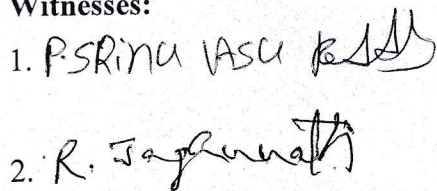 Witnesses:
1. P.SRinu VASu Reddy
2. R. Jagannath